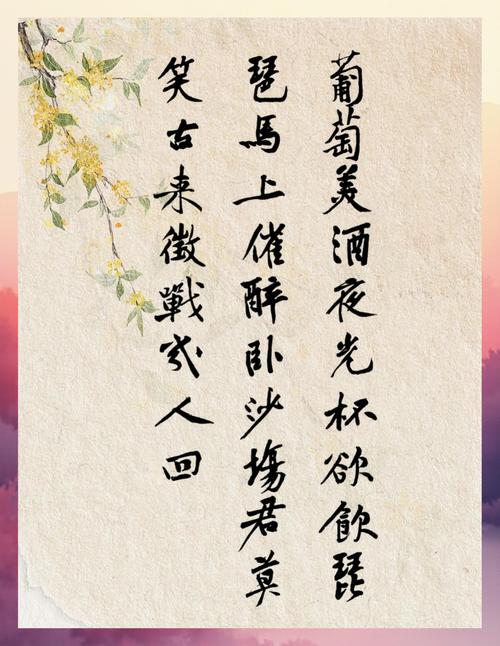 葡萄美酒夜光杯欲飲琵
琶馬上催醉卧沙場君莫
笑古来徵戰幾人回